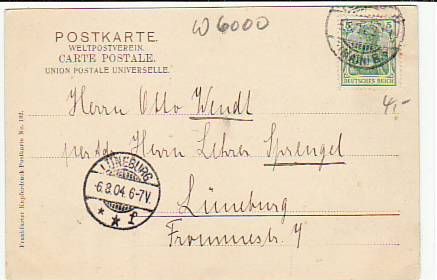 W 6000
POSTKARTE.
WELTPOSTVEREIN.
CARTE POSTALE.
UNION POSTALE UNIVERSELLE.
5
5
DEUTSCHES REICH
(MAIN)
4,-
Herrn Otto Wendt
Herrn Lehrer Sprengel
Lüneburg
Frommestr. 4
LÜNEBURG
6.8.04.6-7V.
* * f
Frankfurter Kupferdruck Postkarte No. 192.